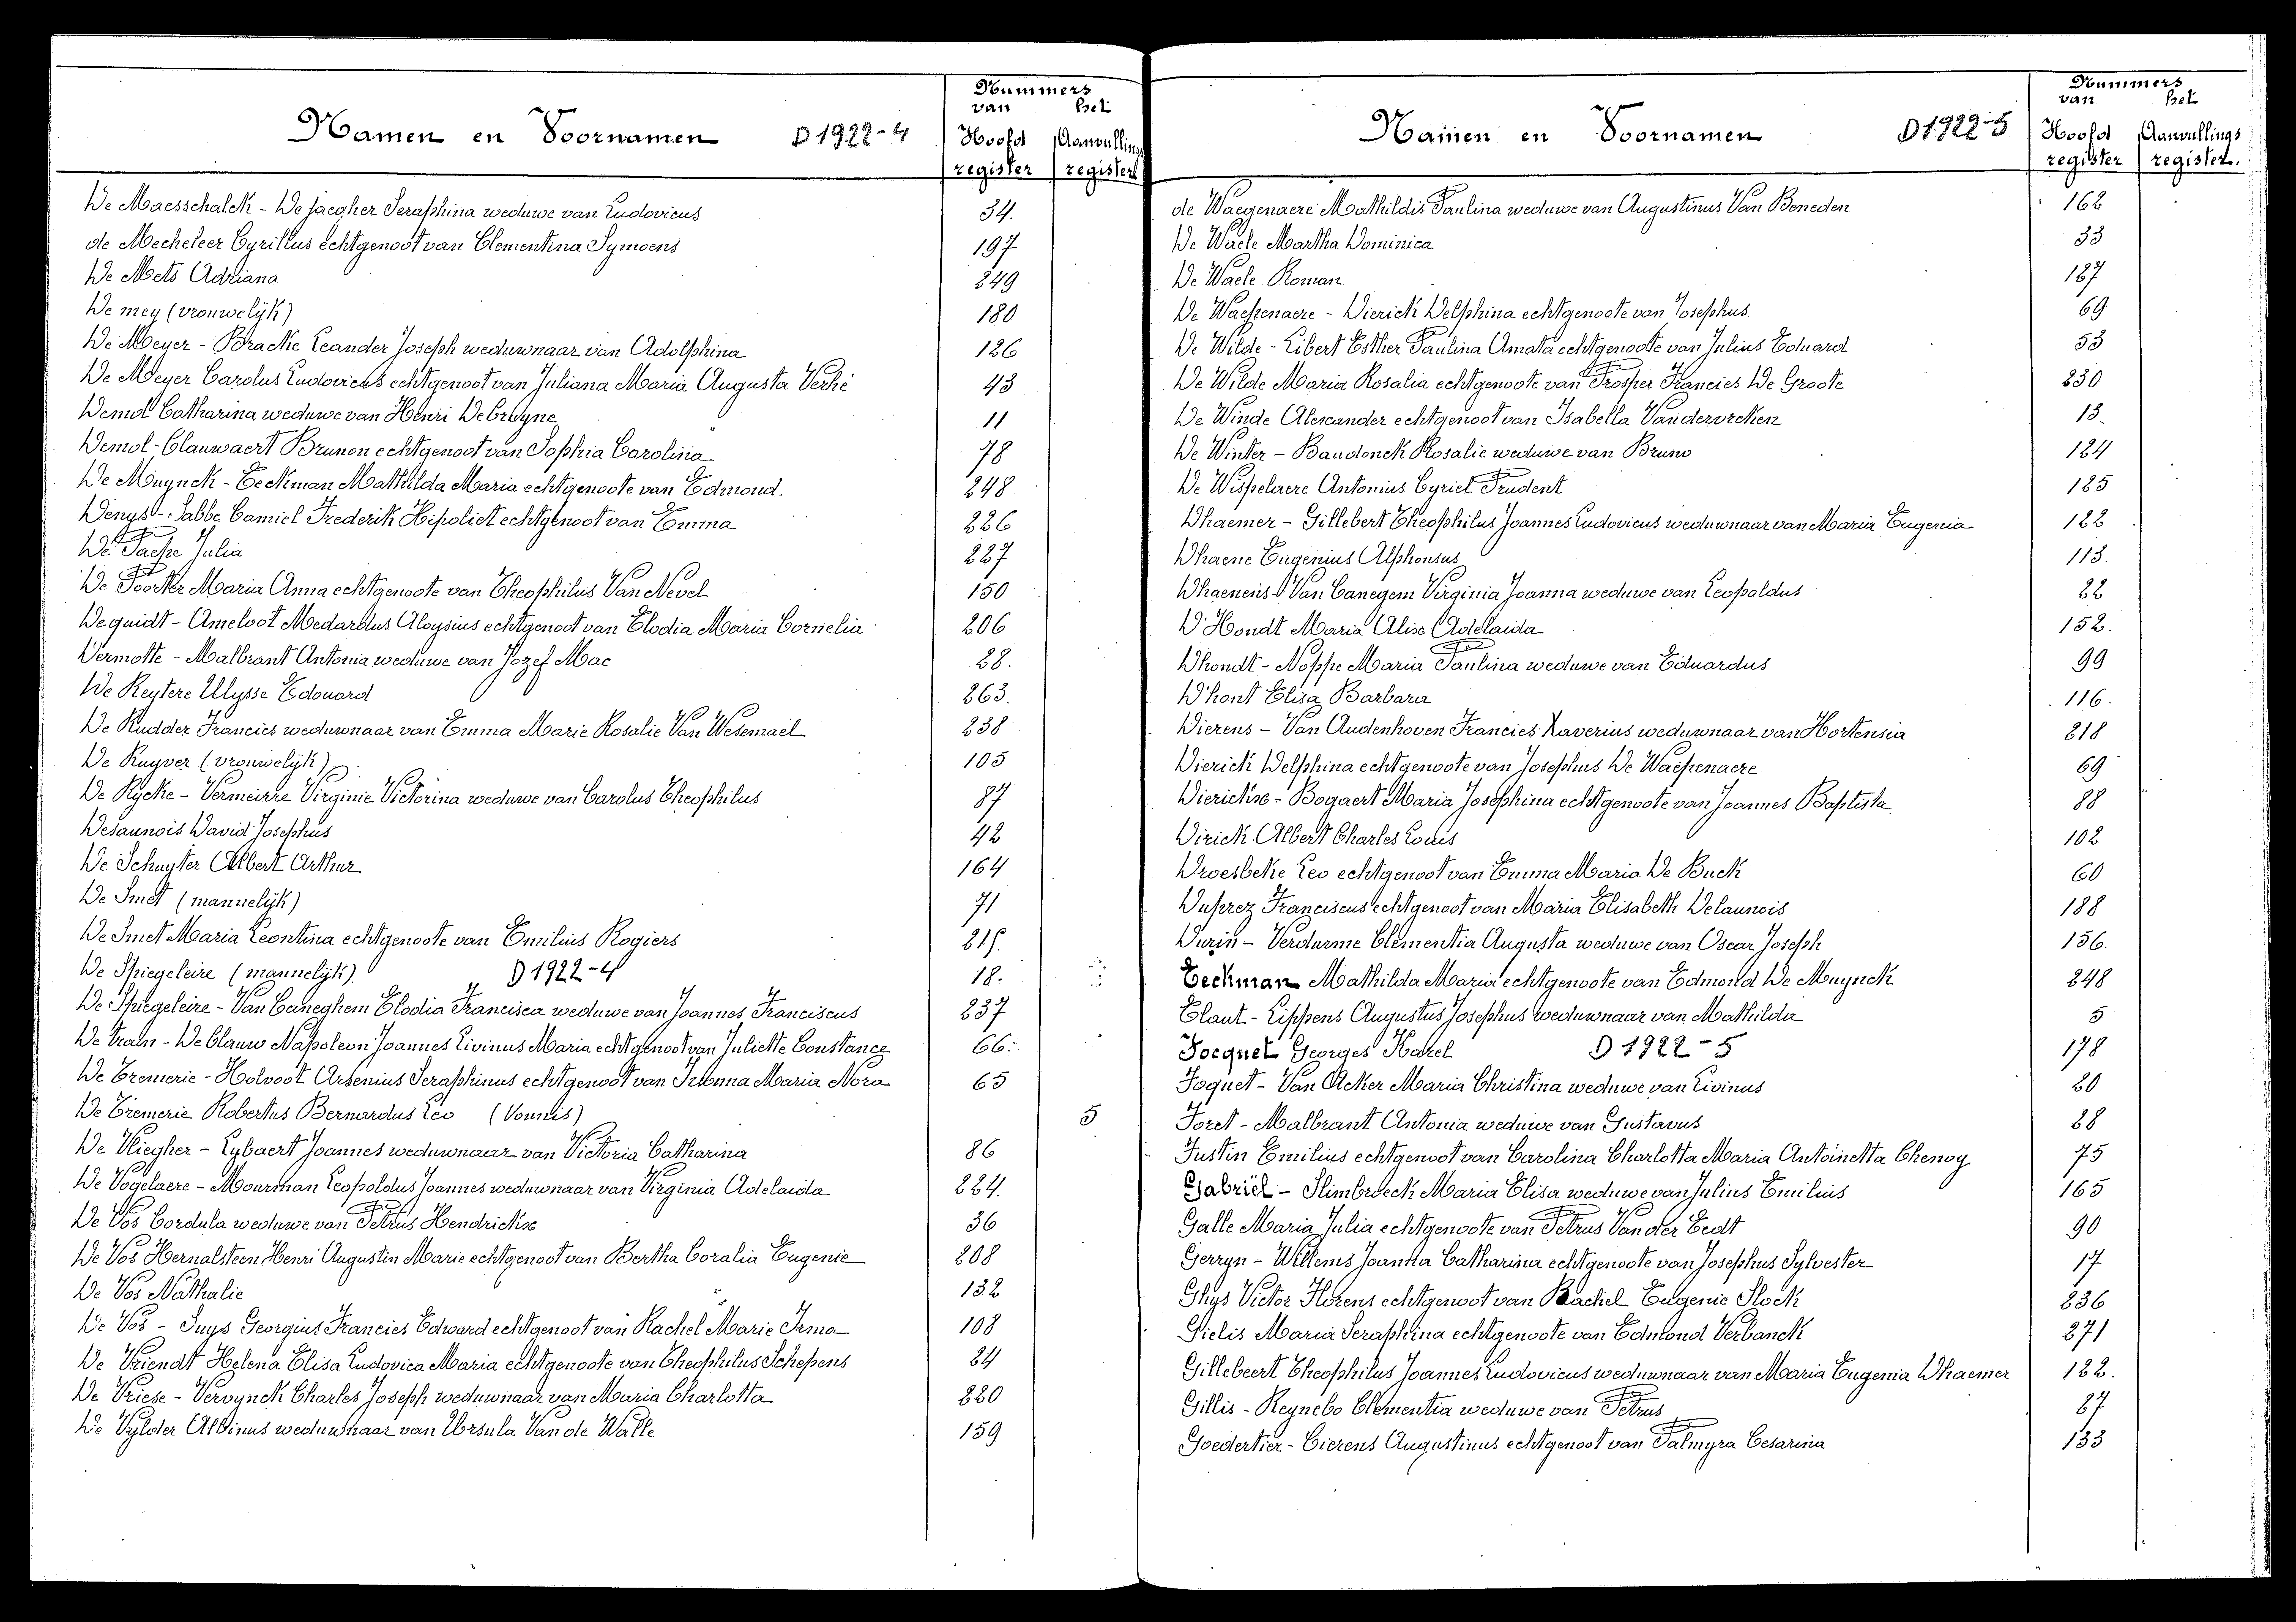 Nummers
van het
Namen en Voornamen D 1922-4 Hoofd Aanvullings
register register
De Maesschalck - De jaegher Seraphina weduwe van Ludovicus 34.
de Mecheleer Cyrillus echtgenoot van Clementina Symoens 197
De Mets Adriana 249
De mey (vrouwelijk) 180
De Meyer - Bracke Leander Joseph weduwnaar van Adolphina 126
De Meyer Carolus Ludovicus echtgenoot van Juliana Maria Augusta Verhé 43
Demol Catharina weduwe van Henri Debruyne 11
Demol-Clauwaert Brunon echtgenoot van Sophia Carolina 78
De Muynck - Eeckman Mathilda Maria echtgenoote van Edmond. 248
Denys - Sabbe Camiel Frederik Hipoliet echtgenoot van Emma 226
De Paepe Julia 227
De Poorter Maria Anna echtgenoote van Theophilus Van Nevel 150
Dequidt - Ameloot Medardus Aloysius echtgenoot van Elodia Maria Cornelia 206
Dermotte - Malbrant Antonia weduwe van Jozef Mac 28.
De Reytere Ulysse Edouard 263.
De Rudder Francies weduwnaar van Emma Marie Rosalie Van Wesemael 238
De Ruyver (vrouwelijk) 105
De Rycke - Vermeirre Virginie Victorina weduwe van Carolus Theophilus 87
Desaunois David Josephus 42
De Schuyter Albert Arthur 164
De Smet (mannelijk) 71
De Smet Maria Leontina echtgenoote van Emilius Rogiers 215.
De Spiegeleire (mannelijk). D 1922-4 18.
De Spiegeleire - Van Caneghem Elodia Francisca weduwe van Joannes Franciscus 237
De train - De Clauw Napoleon Joannes Livinus Maria echtgenoot van Juliette Constance 66.
De Tremerie - Holvoet Arsenius Seraphinus echtgenoot van Irenna Maria Nora 65
De Tremerie Robertus Bernardus Leo (Vonnis) 5
De Vliegher - Lybaert Joannes weduwnaar van Victoria Catharina 86
De Vogelaere - Mourman Leopoldus Joannes weduwnaar van Virginia Adelaida 224.
De Vos Cordula weduwe van Petrus Hendrickse 36
De Vos Hernalsteen Henri Augustin Marie echtgenoot van Bertha Coralia Eugenie 208
De Vos Nathalie 132
De Vos - Suys Georgius Francies Edward echtgenoot van Rachel Marie Irma 108
De Vriendt Helena Elisa Ludovica Maria echtgenoote van Theophilus Schepens 24
De Vriese - Vervynck Charles Joseph weduwnaar van Maria Charlotta 220
De Vylder Albinus weduwnaar van Ursula Van de Walle 159
Nummers
van het
Namen en Voornamen D 1922-5 Hoofd Aanvullings
register register.
de Waegenaere Mathildis Paulina weduwe van Augustinus Van Beneden 162
De Waele Martha Dominica 33
De Waele Roman 187
De Waepenaere - Dierick Delphina echtgenoote van Josephus 69
De Wilde - Libert Esther Paulina Amata echtgenoote van Julius Eduard 53
De Wilde Maria Rosalia echtgenoote van Prosper Francies De Groote 230
De Winde Alexander echtgenoot van Isabella Vandervreken 13.
De Winter - Baudonck Rosalie weduwe van Bruno 124
De Wispelaere Antonius Cyriel Prudent 125
Dhaemer - Gillebert Theophilus Joannes Ludovicus weduwnaar van Maria Eugenia 122
Dhaene Eugenius Alphonsus 113.
Dhaenens - Van Canegem Virginia Joanna weduwe van Leopoldus 22
D'Hondt Maria Alise Adelaida 152.
Dhondt - Noppe Maria Paulina weduwe van Eduardus 99
D'hont Elisa Barbara 116.
Dierens - Van Audenhoven Francies Xaverius weduwnaar van Hortensia 218
Dierick Delphina echtgenoote van Josephus De Waepenaere 69
Dierickse - Bogaert Maria Josephina echtgenoote van Joannes Baptista 88
Dirick Albert Charles Louis 102
Droesbeke Leo echtgenoot van Emma Maria De Buck 60
Duprez Franciscus echtgenoot van Maria Elisabeth Delaunois 188
Durin - Verdurme Clementia Augusta weduwe van Oscar Joseph 156.
Eeckman Mathilda Maria echtgenoote van Edmond De Muynck 248
Elaut - Lippens Augustus Josephus weduwnaar van Mathilda 5
Focquet Georges Karel D 1922-5 178
Foquet - Van Acker Maria Christina weduwe van Livinus 20
Foret - Malbrant Antonia weduwe van Gustavus 28
Fustin Emilius echtgenoot van Carolina Charlotta Maria Antoinetta Chenoy 75
Gabriël - Slimbroeck Maria Elisa weduwe van Julius Emilius 165
Galle Maria Julia echtgenoote van Petrus Van der Eedt 90
Gerryn - Willems Joanna Catharina echtgenoote van Josephus Sylvester 17
Ghys Victor Florens echtgenoot van Rachel Eugenie Slock 236
Gielis Maria Seraphina echtgenoote van Edmond Verbanck 271
Gillebeert Theophilus Joannes Ludovicus weduwnaar van Maria Eugenia Dhaemer 122.
Gillis - Reynebo Clementia weduwe van Petrus 27
Goedertier - Cierens Augustinus echtgenoot van Palmyra Cesarina 133